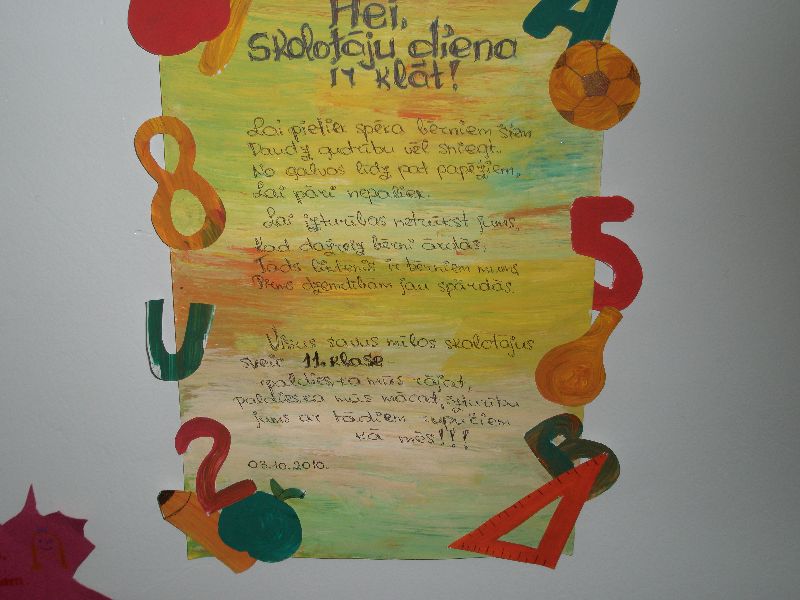 Hei,
Skolotāju diena
ir klāt!
Lai pietiek spēra bērniem šiem
Daudz gudrību vēl sniegt.
No galvas līdz pat papēžiem,
Lai pāri nepaliek.
Lai izturības netrūkst jums,
Kad dažreiz bērni ārdās,
Tāds liktenis ir bērniem mums
Pirms dzemdībām jau spārdās.
Visus savus mīļos skolotājus
sveic 11. klase
paldies, ka mūs rājat,
paldies, ka mūs mācat, izturību
jums ar tādiem
kā mēs!!!
03.10.2010.
8
5
U
2
A
B